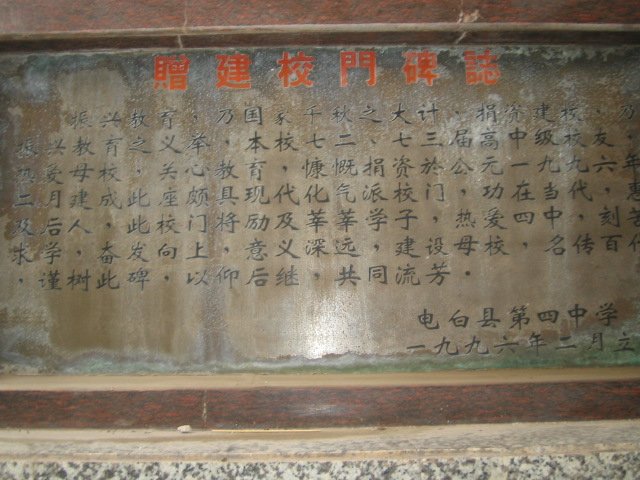 贈建校門碑誌
振兴教育，乃国家千秋之大计，捐资建校，乃
振兴教育之义举，本校七二、七三届高中级校友，
热爱母校，关心教育，慷慨捐资，於公元一九九六年
二月建成此座颇具现代化气派校门，功在当代，惠
及后人，此校门将励及莘莘学子，热爱四中，刻苦
求学，奋发向上，意义深远，建设母校，名传百代
，谨树此碑，以仰后继，共同流芳。
电白县第四中学
一九九六年二月立